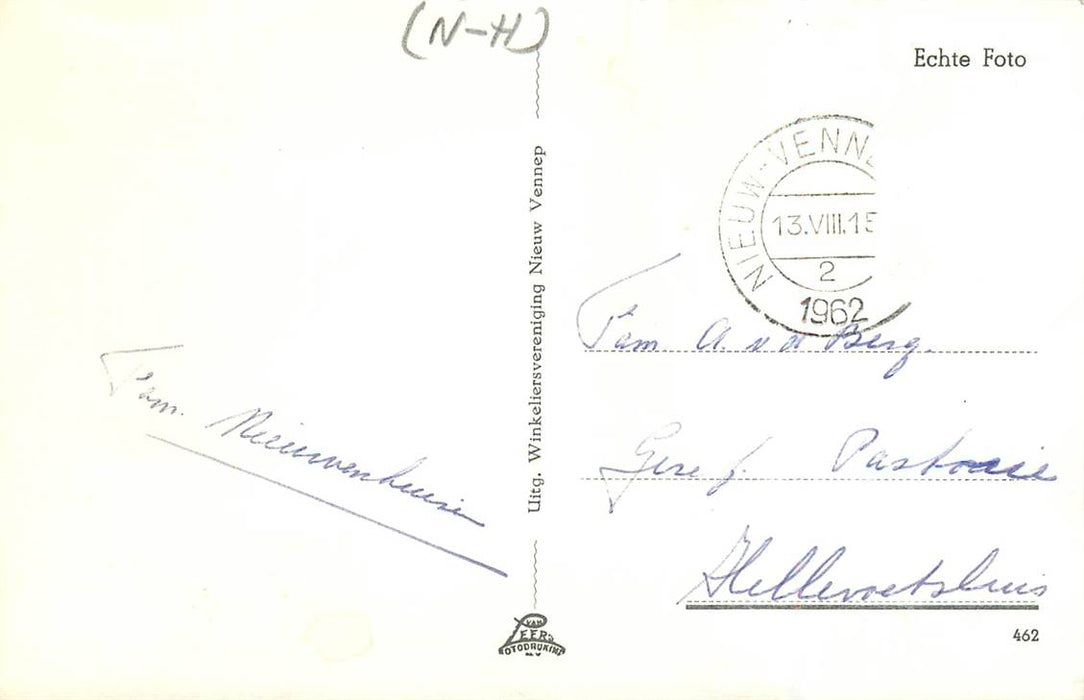 (N-H)
Echte Foto
NIEUW-VENNE
13.VIII.15
2
1962
Uitg. Winkeliersvereniging Nieuw Vennep
Fam A. v d Berg.
Geref. Pastorie
Hellevoetsluis
Fam. Nieuwenhuize
VAN
LEER's
FOTODRUKIND
N.V
462